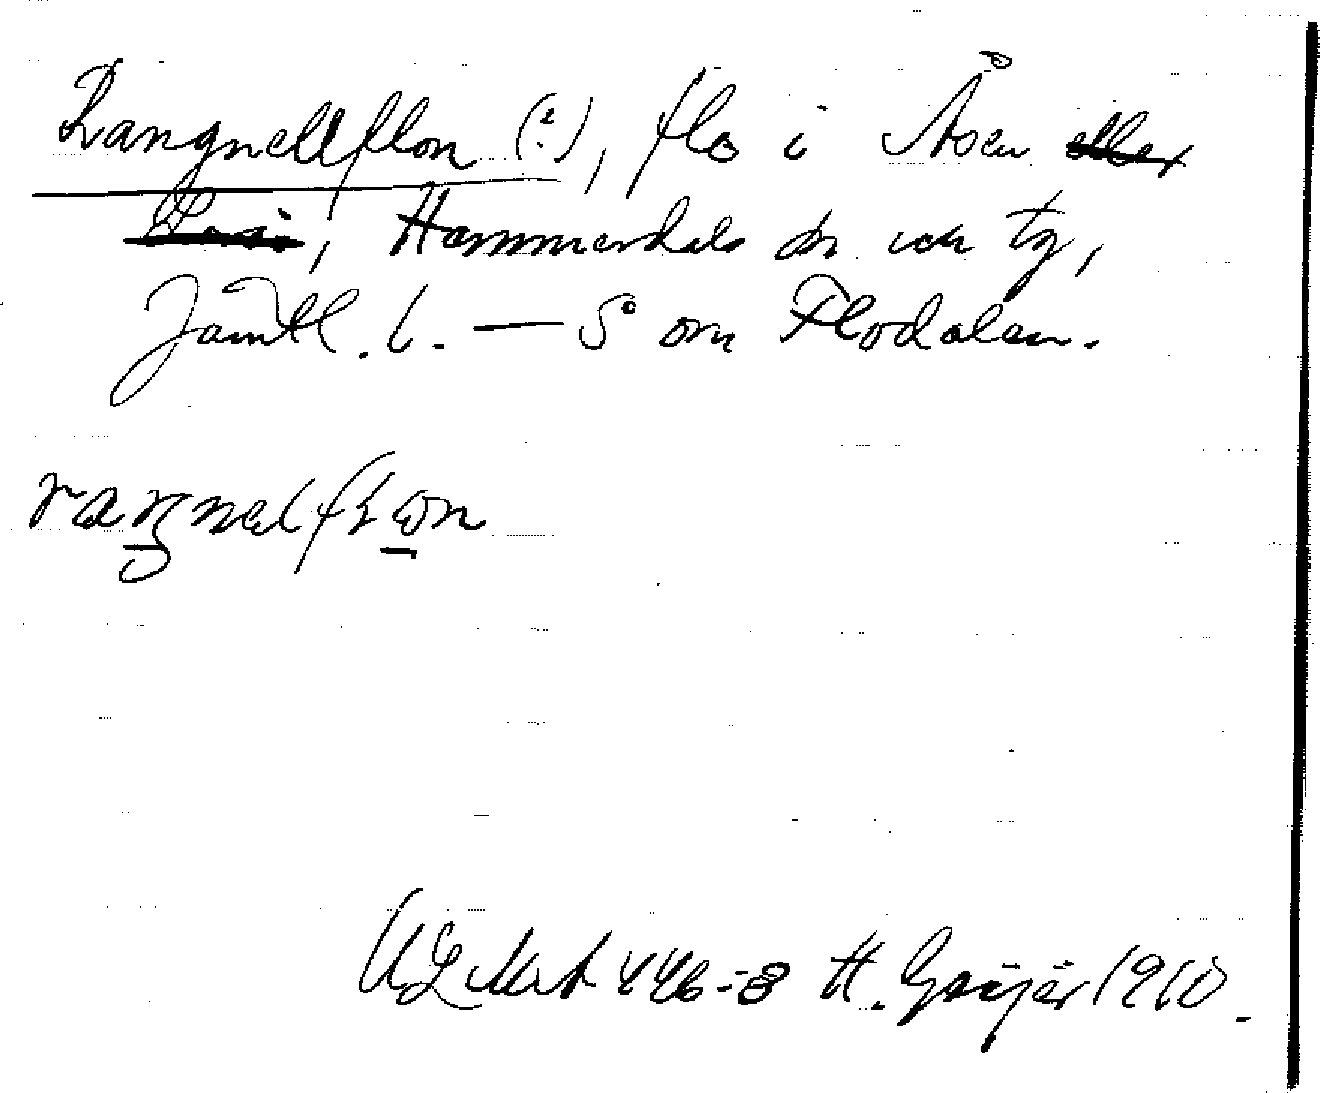 Rangnellflon (?), flo i Åsen ~~eller~~
, Hammerdals sn och tg,
Jämtl. l. — S° om Flodalen.
raŋnelflon
ULMA 446:8 H. Geijer 1910.